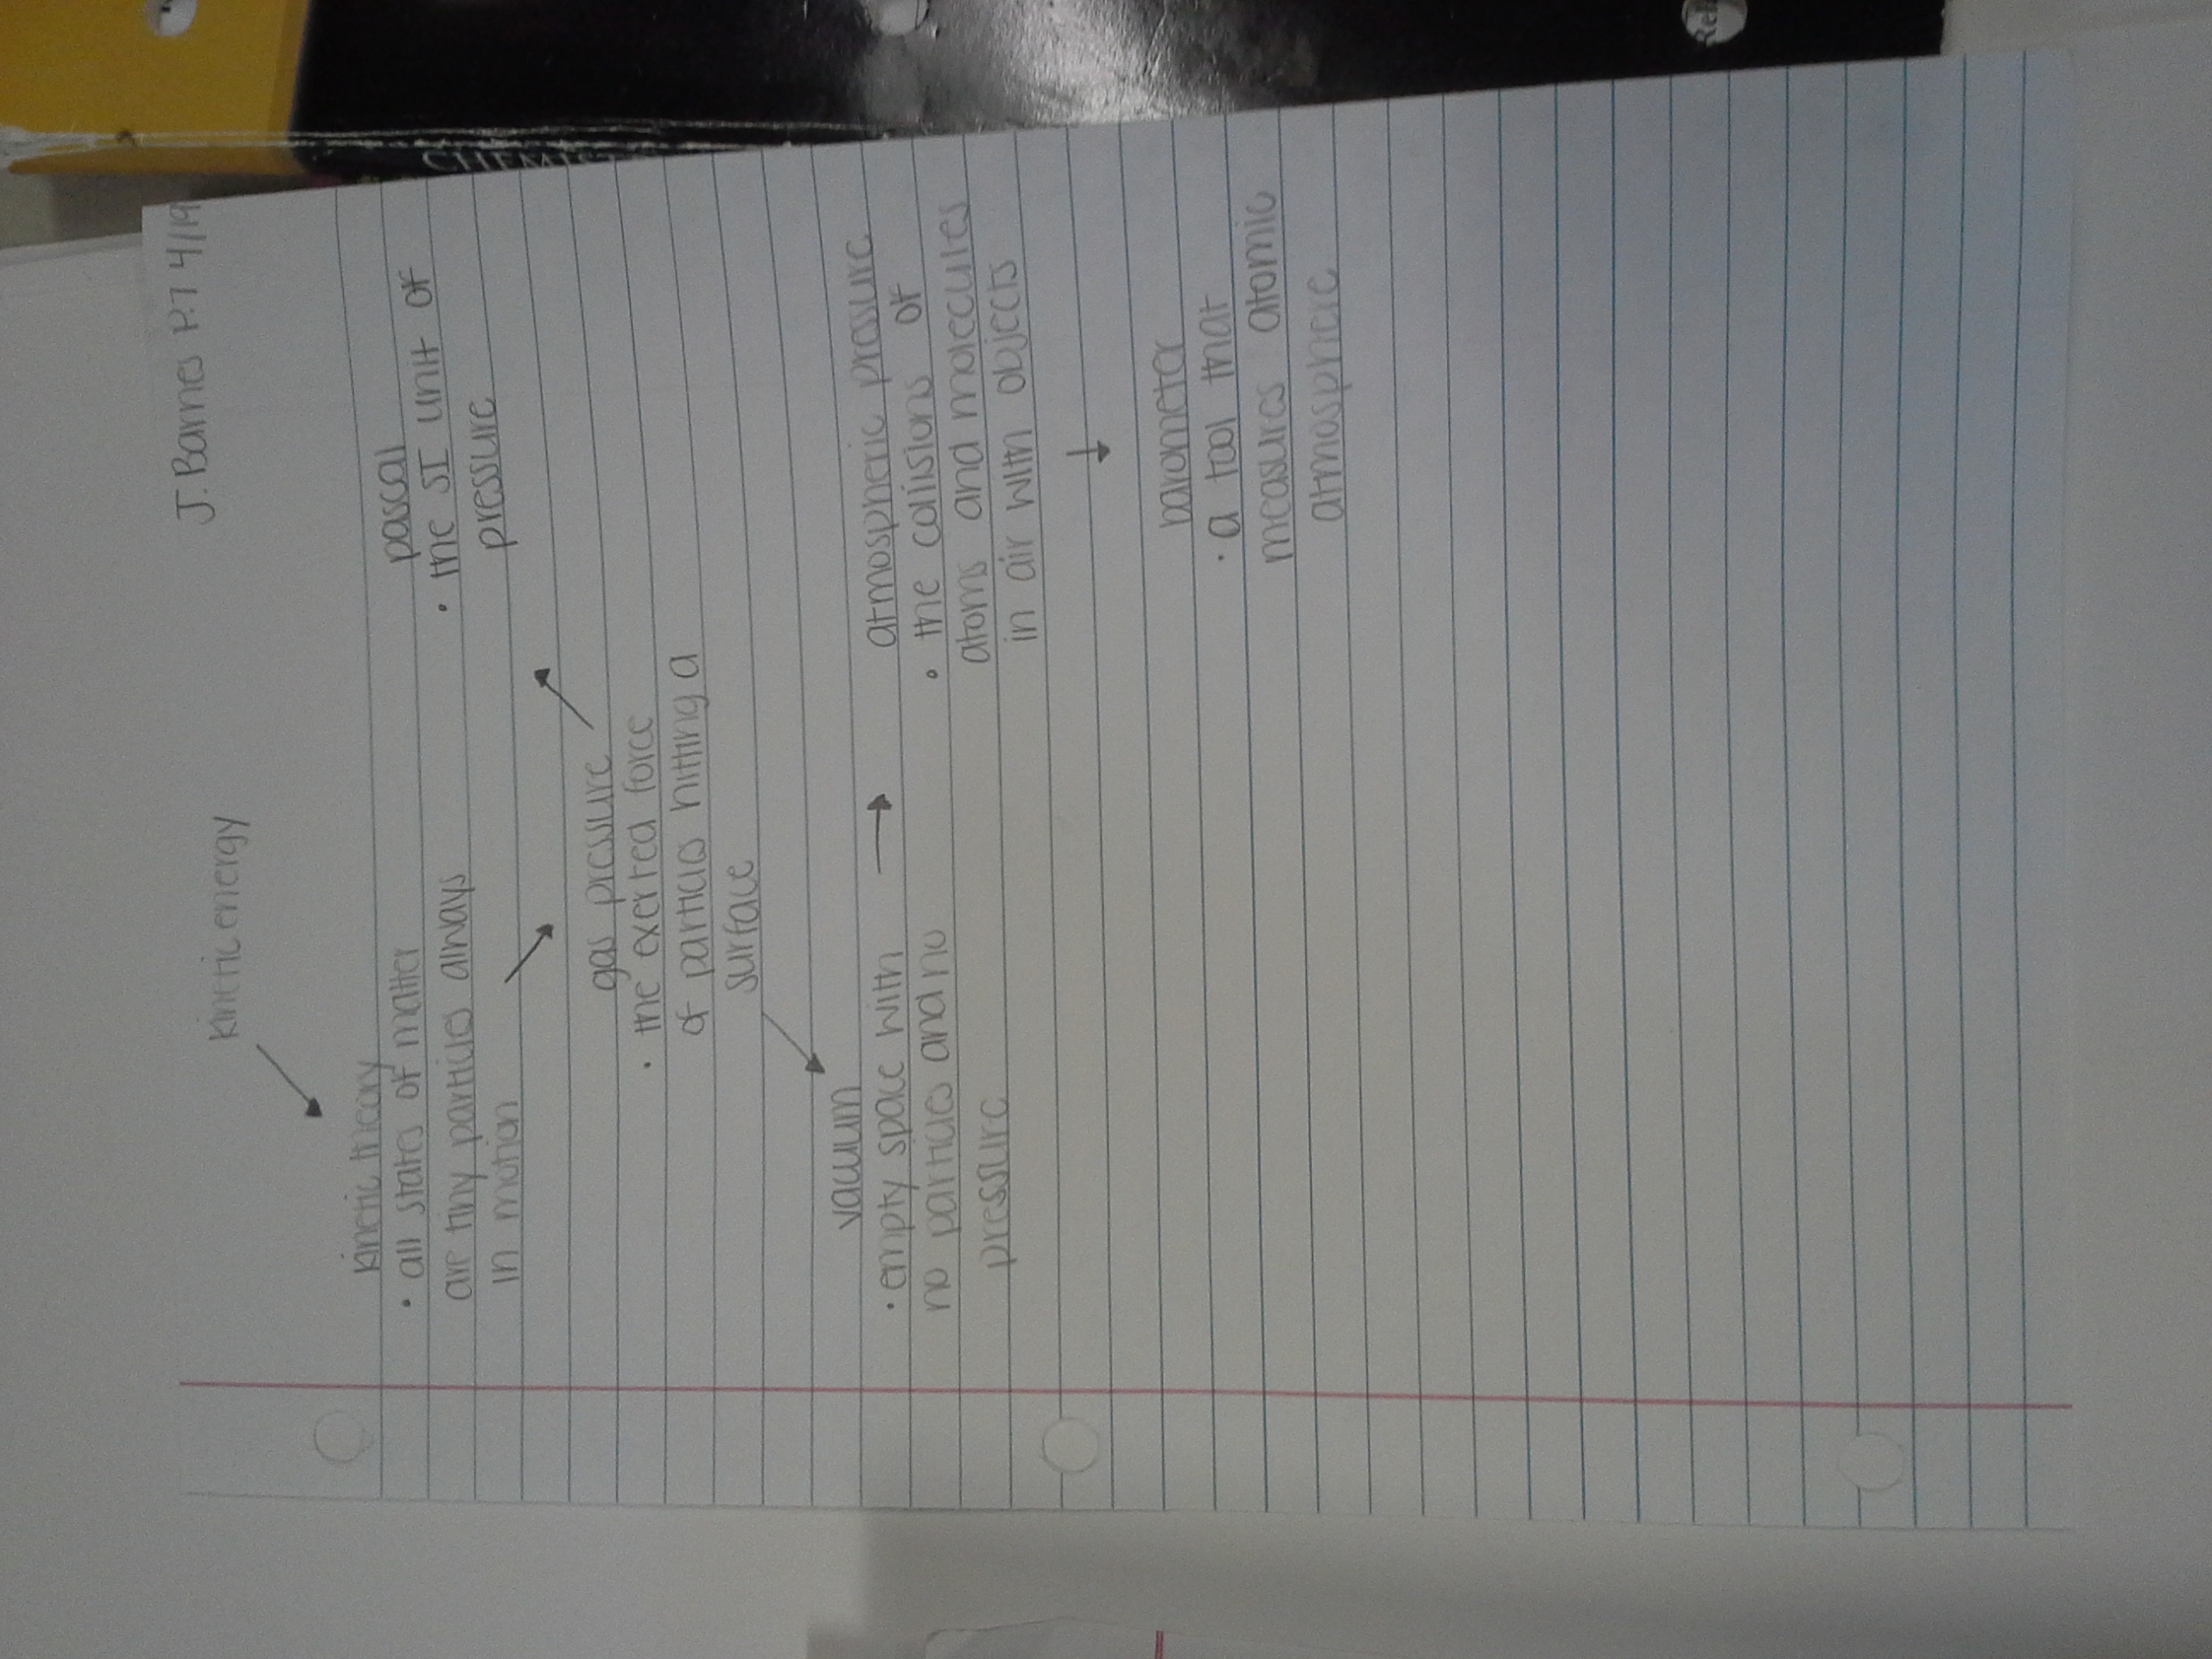 J. Barnes P.7 4/19
kinetic energy
kinetic theory
• all states of matter
are tiny particles always
in motion
pascal
• the SI unit of
pressure
gas pressure
• the exerted force
of particles hitting a
surface
vacuum
• empty space with
no particles and no
pressure
atmospheric pressure
• the collisions of
atoms and molecules
in air with objects
barometer
• a tool that
measures atomic
atmosphere
CHEMIST